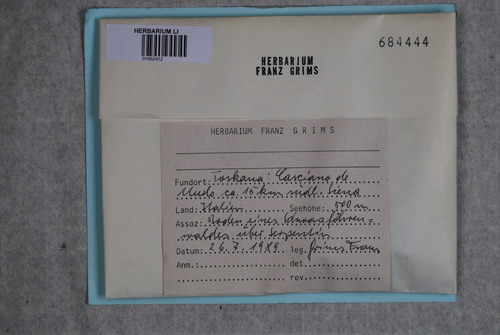 HERBARIUM LI
01662412
684444
HERBARIUM
FRANZ GRIMS
HERBARIUM FRANZ GRIMS
Fundort: Toskana: Casciano de
ca. 15 km südl. Siena
Land: Italien Seehöhe: 500 m
Assoz: Boden eines
waldes über Serpentin
Datum: 26. 7. 1989 leg. Grims Franz
Anm.: det.
rev.